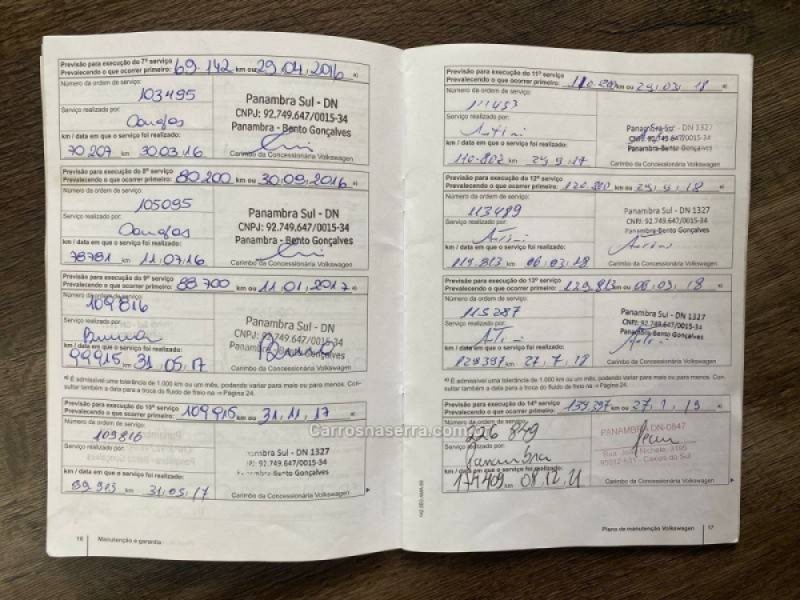 Previsão para execução do 7º serviço
Prevalecendo o que ocorrer primeiro: 69.142 km ou 29.04.2016 a)
Número da ordem de serviço:
103495
Serviço realizado por:
km / data em que o serviço foi realizado:
70207 km 30.03.16
Panambra Sul - DN
CNPJ: 92.749.647/0015-34
Panambra - Bento Gonçalves
Carimbo da Concessionária Volkswagen
Previsão para execução do 8º serviço
Prevalecendo o que ocorrer primeiro: 80.200 km ou 30.09.2016 a)
Número da ordem de serviço:
105095
Serviço realizado por:
km / data em que o serviço foi realizado:
78781 km 11.07.16
Panambra Sul - DN
CNPJ: 92.749.647/0015-34
Panambra - Bento Gonçalves
Carimbo da Concessionária Volkswagen
Previsão para execução do 9º serviço
Prevalecendo o que ocorrer primeiro: 88.700 km ou 11.01.2017 a)
Número da ordem de serviço:
109816
Serviço realizado por:
km / data em que o serviço foi realizado:
99915 31.05.17
Panambra Sul - DN
CNPJ: 92.749.647/0015-34
Panambra - Bento Gonçalves
Carimbo da Concessionária Volkswagen
a) É admissível uma tolerância de 1.000 km ou um mês, podendo variar para mais ou para menos. Con-
sultar também a data para a troca do fluido de freio na ⇒ Página 24.
Previsão para execução do 10º serviço
Prevalecendo o que ocorrer primeiro: 109915 km ou 31.11.17 a)
Número da ordem de serviço:
109816
Serviço realizado por:
km / data em que o serviço foi realizado:
km 31.05.17
Panambra Sul - DN 1327
CNPJ: 92.749.647/0015-34
Panambra-Bento Gonçalves
Carimbo da Concessionária Volkswagen
16 Manutenção e garantia
Previsão para execução do 11º serviço
Prevalecendo o que ocorrer primeiro: km ou 18 a)
Número da ordem de serviço:
Serviço realizado por:
km / data em que o serviço foi realizado:
110.802 km 29.9.17
Panambra Sul - DN 1327
CNPJ: 92.749.647/0015-34
Panambra-Bento Gonçalves
Carimbo da Concessionária Volkswagen
Previsão para execução do 12º serviço
Prevalecendo o que ocorrer primeiro: km ou 18 a)
Número da ordem de serviço:
113489
Serviço realizado por:
km / data em que o serviço foi realizado:
119.813 km 06.03.18
Panambra Sul - DN 1327
CNPJ: 92.749.647/0015-34
Panambra-Bento Gonçalves
Carimbo da Concessionária Volkswagen
Previsão para execução do 13º serviço
Prevalecendo o que ocorrer primeiro: 129.813 km ou 18 a)
Número da ordem de serviço:
115287
Serviço realizado por:
km / data em que o serviço foi realizado:
129397 km 27.7.18
Panambra Sul - DN 1327
CNPJ: 92.749.647/0015-34
Panambra-Bento Gonçalves
Carimbo da Concessionária Volkswagen
a) É admissível uma tolerância de 1.000 km ou um mês, podendo variar para mais ou para menos. Con-
sultar também a data para a troca do fluido de freio na ⇒ Página 24.
Previsão para execução do 14º serviço
Prevalecendo o que ocorrer primeiro: 139.397 km ou 27.1.19 a)
Número da ordem de serviço:
226 849
Serviço realizado por:
Panambra
km / data em que o serviço foi realizado:
km 08.12.21
PANAMBRA DN-0847
95012-631 - Caxias do Sul
Carimbo da Concessionária Volkswagen
Plano de manutenção Volkswagen 17
Carrosnaserra.com